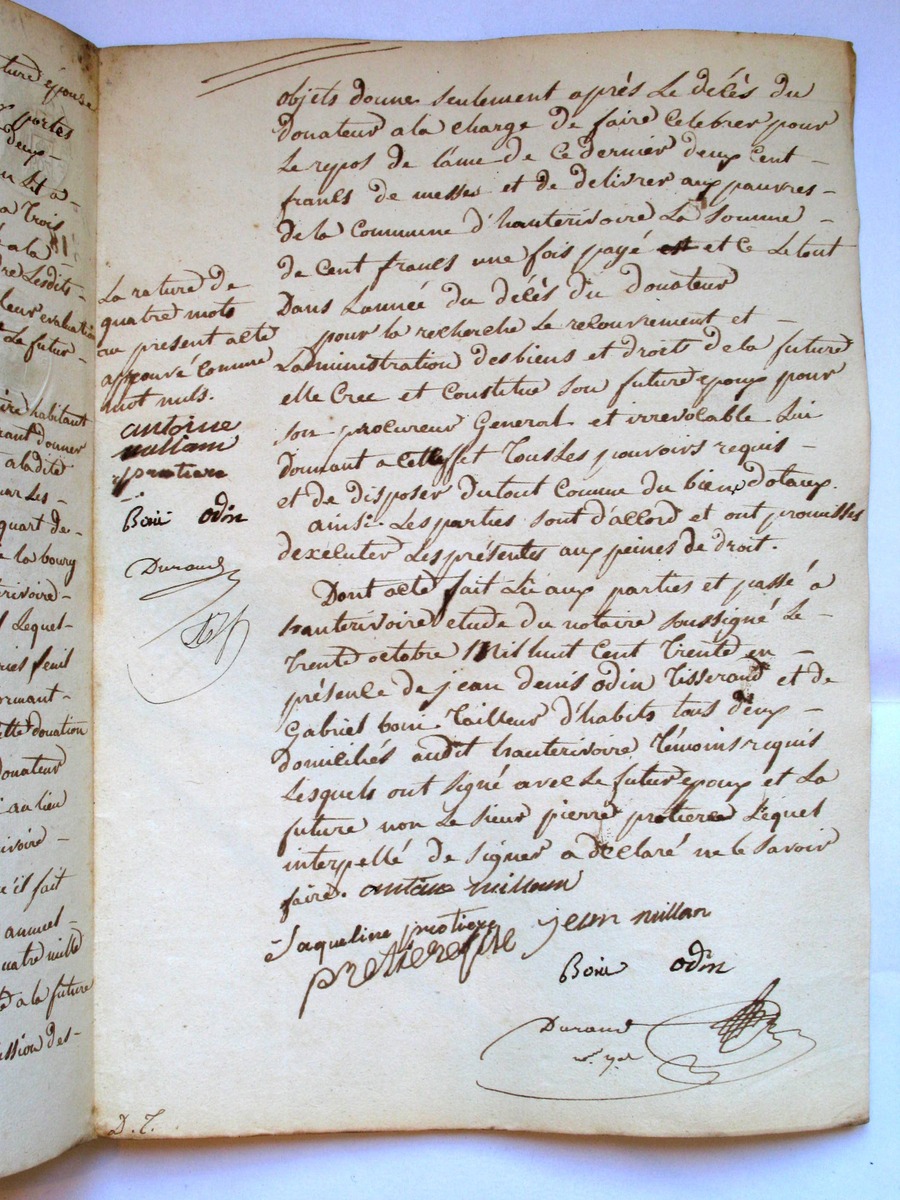 ture épouse
portes
deux-
un Lit a-
a Trois
à la
dre Lesdits-
leur evaluation
Le futur-
habitant
rant donner
a ladite
par Les-
quart de-
e la bourg
terivoire-
Lequel-
feuil
ormant-
ette donation
donateur
au lien
ivoire-
qu'il fait
annuel-
quatre mille
té a la future
ission des-
objets donne seulement après Le décès du
Donateur a la charge de faire Celebrer pour
Le repos de l'âme de Ce dernier deux Cent-
francs de messes et de delivrer aux pauvres-
de la Commune d'hauterivoire La Somme-
de Cent francs une fois payé et Ce Le tout
Dans L'année du décès du Donateur
pour la recherche Le recouvrement et-
L'administration des biens et droits de la future
elle Cree et Constitue Son futur epoux pour
Son procureur General et irrevocable Lui
Donnant a Cet effet Tous Les pouvoirs requis-
et de disposer du tout Comme du bien dotaux.
ainsi Les parties sont d'accord et ont promisses
d'exécuter Les présentes aux peines de droit.
Dont acte fait Lu aux parties et passé à
hauterivoire etude du notaire soussigné Le-
Trente octobre Mil huit Cent Trente en-
présence de jean denis odin Tisserand et de
Gabriel boni Tailleur d'habits tous deux-
domiciliés audit hauterivoire Témoins requis
Lesquels ont signé avec Le futur epoux et La
future non Le Sieur pierre protiere Lequel
interpellé de signer a déclaré ne le Savoir
faire. antoine milloun
Jaqueline protiere jean millan
protiere
Boni odin
Durand
La rature de
quatre mots
au présent acte
approuvé Comme
mot nuls.
antoine
millan
protiere
Boni odin
Durand
D. T.